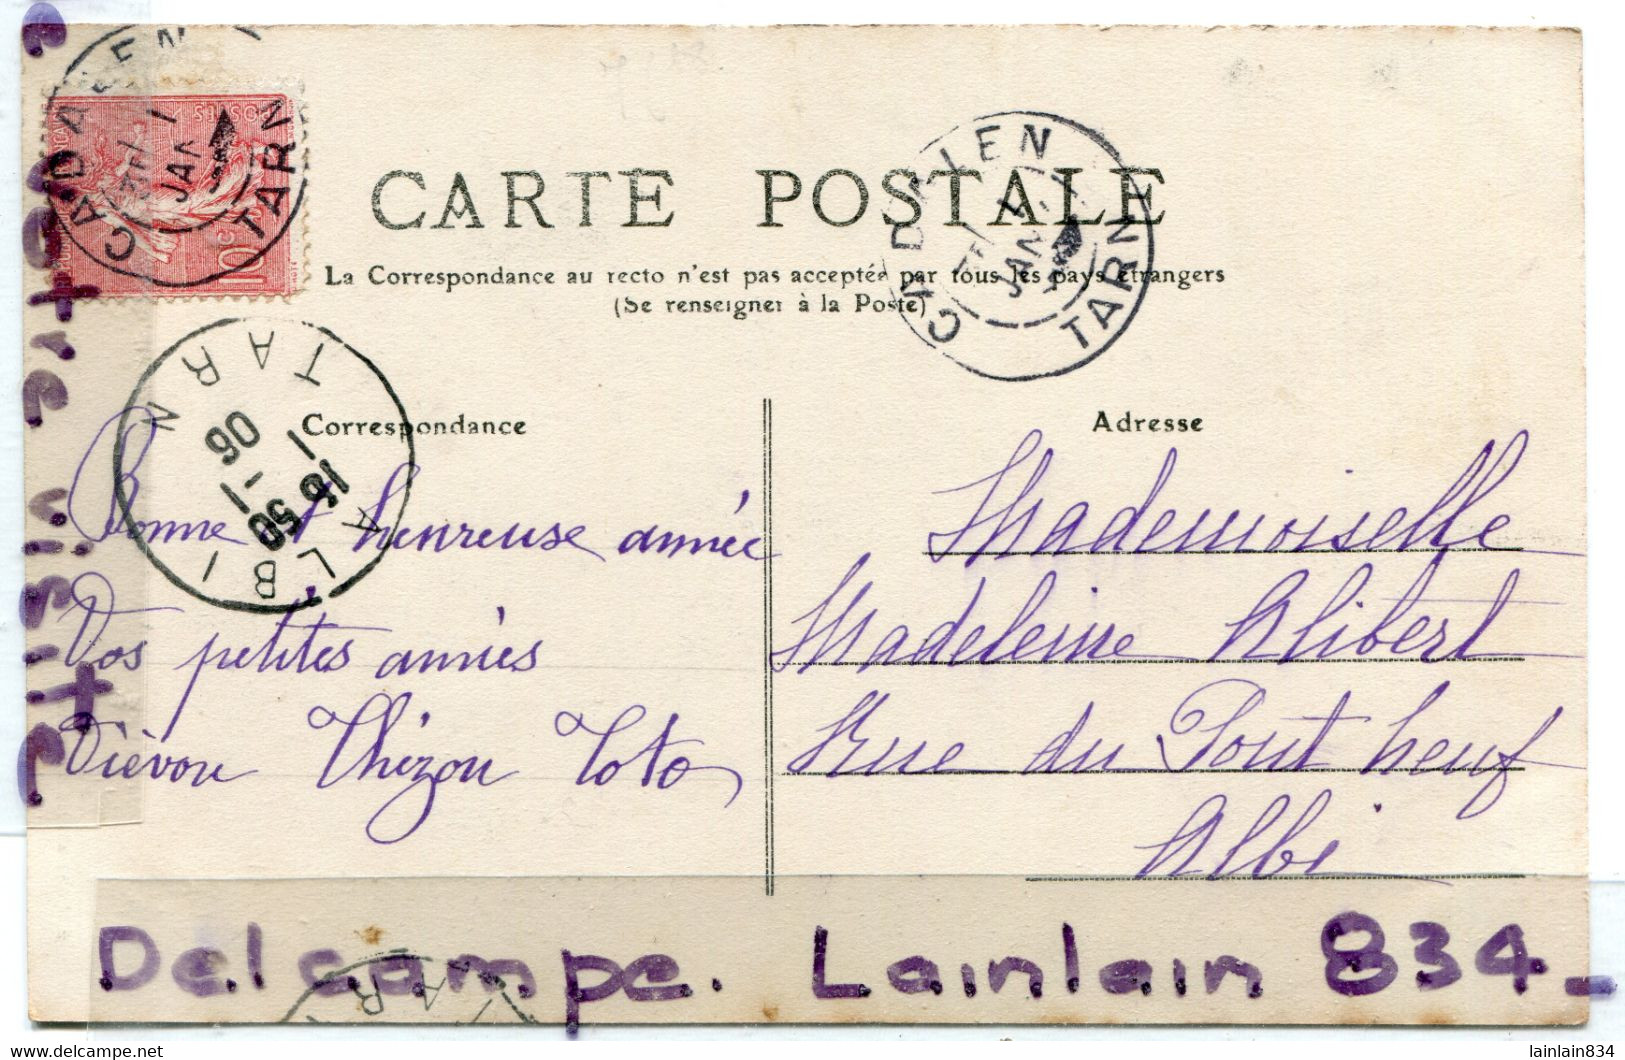 CARTE POSTALE
La Correspondance au recto n'est pas acceptée par tous les pays étrangers
(Se renseigner à la Poste)
Correspondance
Bonne et heureuse année
Vos petites amies
Thizou Toto
Adresse
Mademoiselle
Madeleine Alibert
Rue du Pont neuf
Albi
CADALEN
TARN
JANV
10c
CADALEN
TARN
JANV
ALBI
16 50
1 - 1
06
TARN
TAR
votre visite
Delcampe. Lainlain 834_
www.delcampe.net
lainlain834